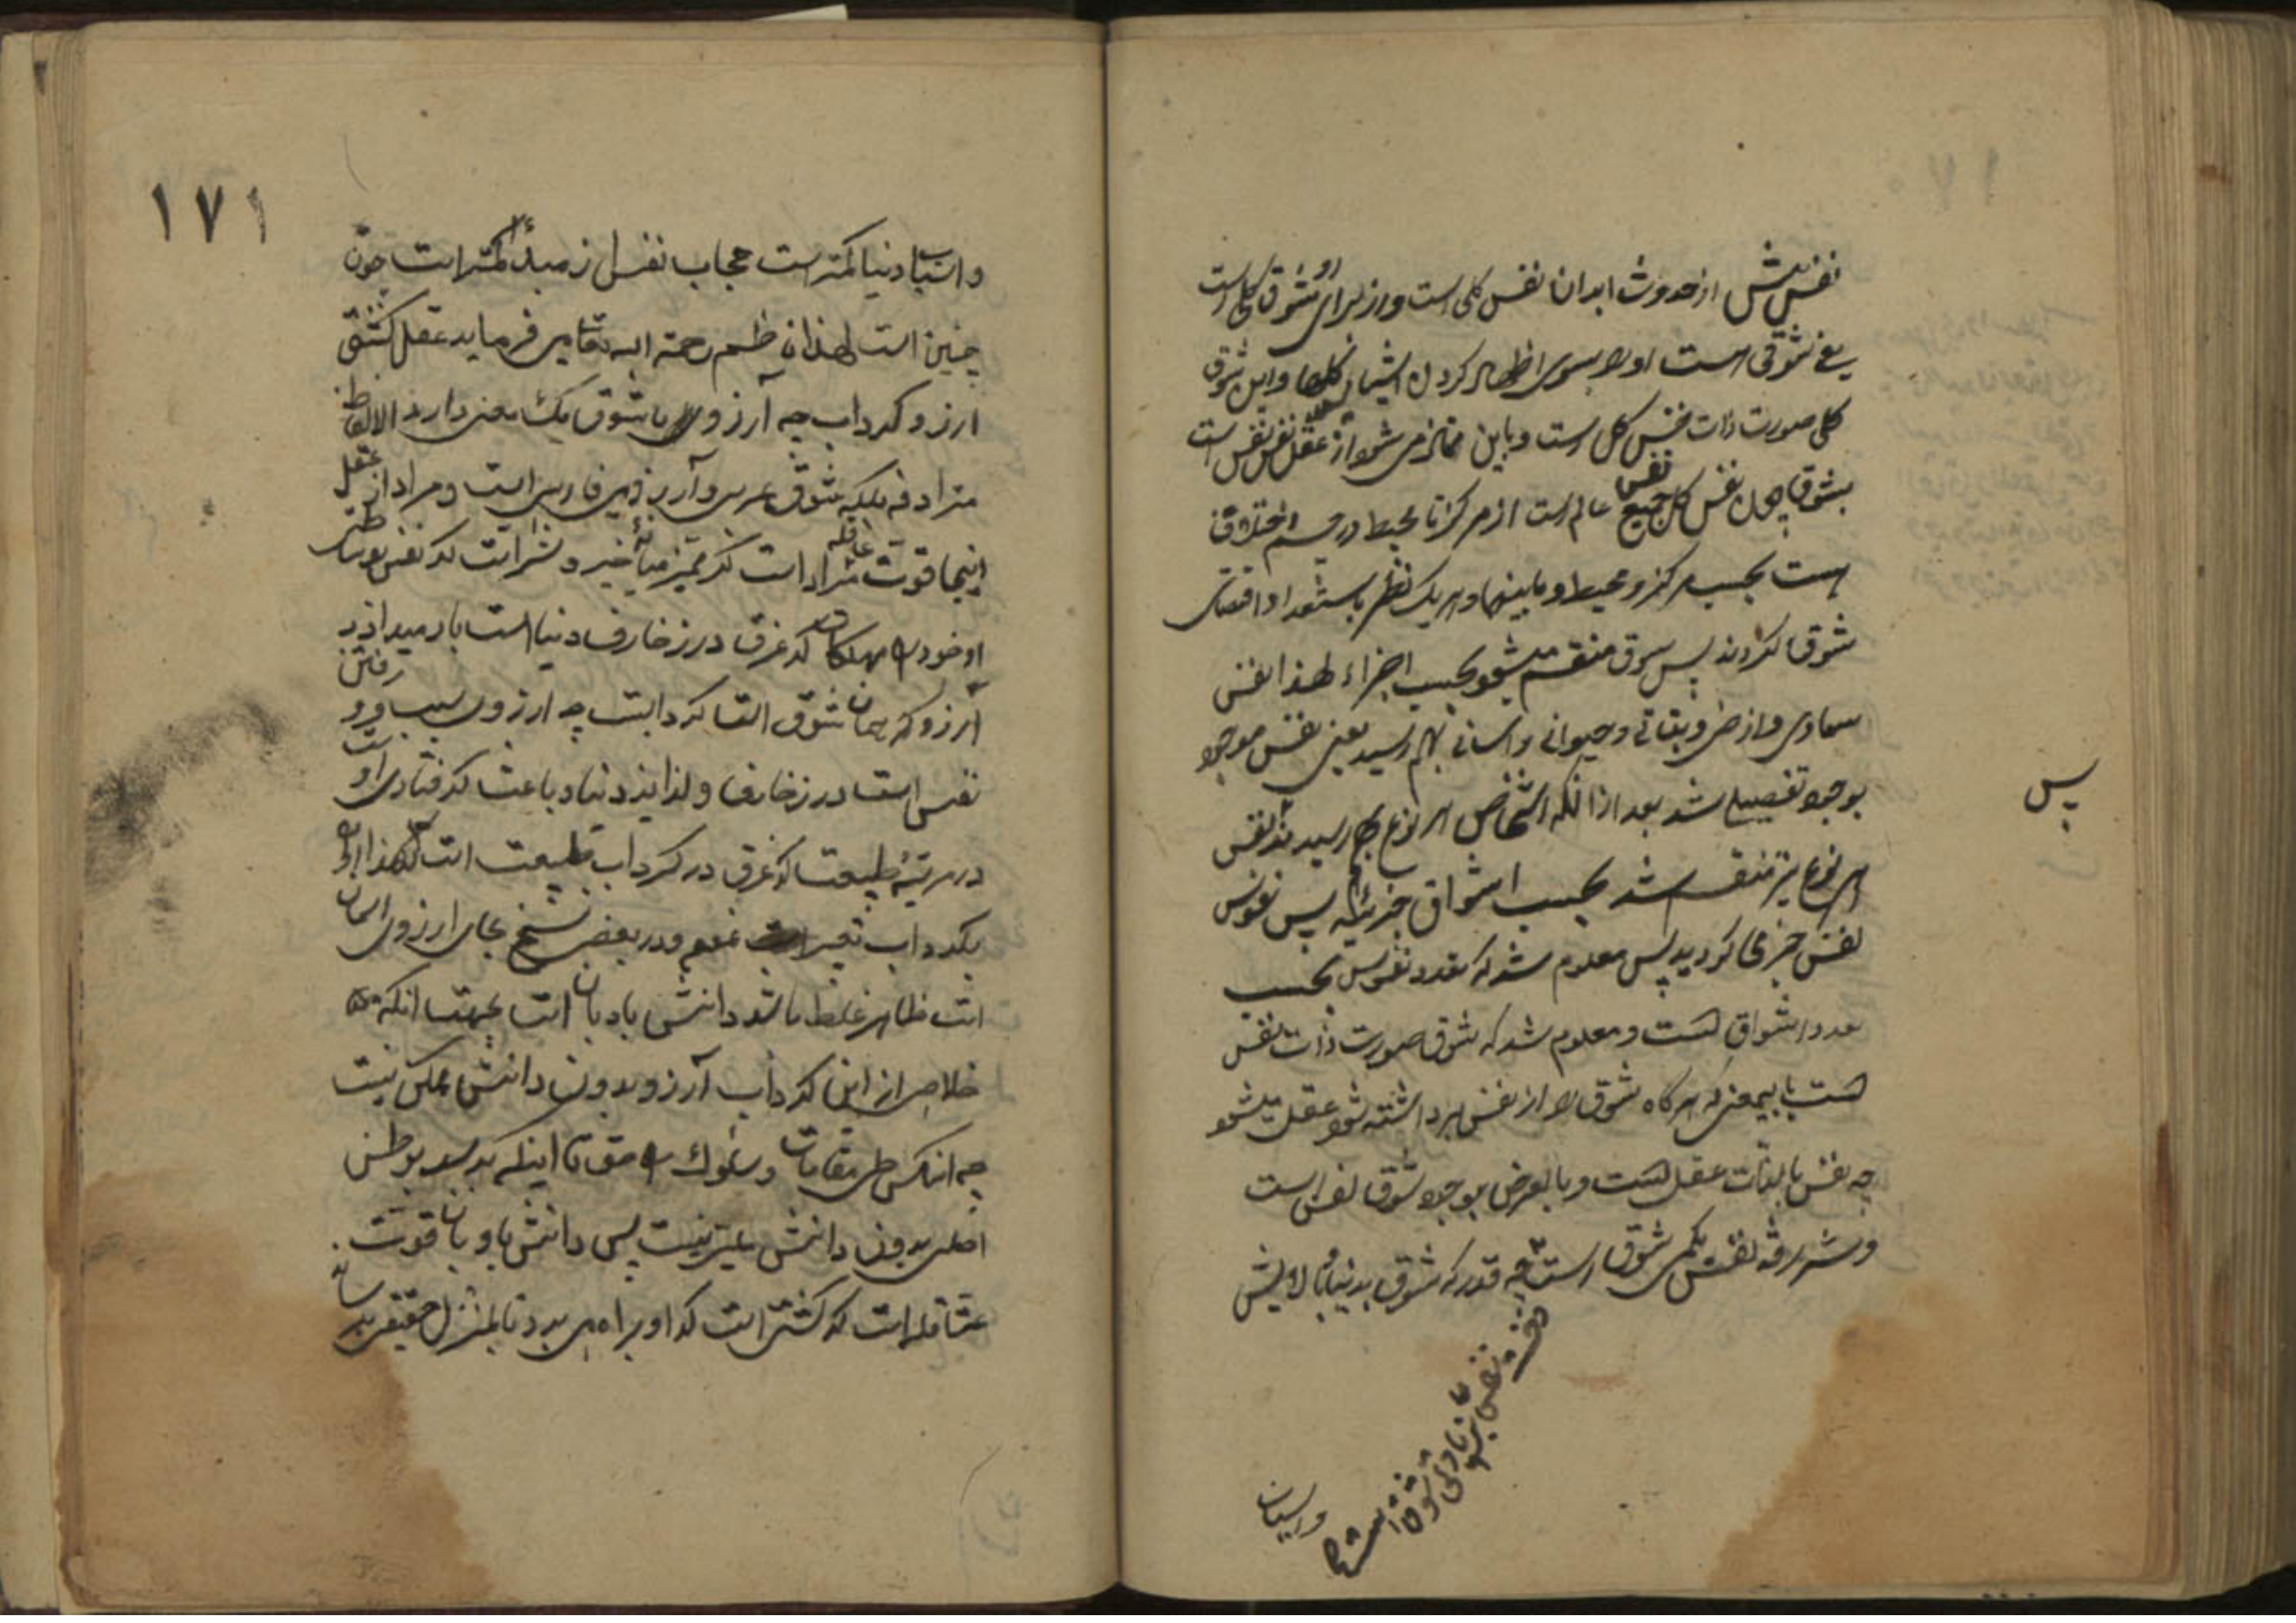 نفس پیش از حدوث ابدان نفس کلی است و از برای او شوق کلی است
یعنی شوقی است او را بسوی اظهار کردن اشیا کلها و این شوق
کلی صورت ذات نفس کل است و باین ممتاز می شود از عقل نفس است
بشوق چون نفس کل نفس جمیع عالم است از مرکز تا محیط در جسم اختلاف
هست بحسب مرکز و محیط و مابینهما و هر یک نظر باستعداد اقتضای
شوق کردند پس شوق منقسم میشود بحسب اجزاء لهذا نفس
سماوی و ارضی و نباتی و حیوانی و انسانی بهم رسید یعنی نفس موجود
بوجود تفصیلی شد بعد از آنکه اشخاص هر نوع بهم رسیدند نفس
پس
هر نوع نیز منقسم شد بحسب اشواق جزئیه پس نفوس
نفس جزئی گردید پس معلوم شد که تعدد نفوس بحسب
تعدد اشواق است و معلوم شد که شوق صورت ذات نفس
است باینمعنی که هر گاه شوق را از نفس برداشته شود عقل میشود
چه نفس بالذات عقل است و بالعرض بوجود شوق نفس است
و شرافة نفس بکمی شوق است چه قدر که شوق بدنیا و آلایش
نفس بزیادتی شوق است
و اسباب
۱۷۱
و اسباب دنیا کمتر است حجاب نفس از مبدأ کمتر است چون
چنین است لهذا ناظم رحمة الله تعالی می فرماید عقل کشتی
آرزو گرداب چه آرزو با شوق یک معنی دارد الالفاظ
مترادفه بلکه شوق عربی و آرزو فارسی است و مراد از عقل
اینجا قوت عاقله مراد است که تمیز میانۀ خیر و شر است که نفس بوساطت
او خود را از مهلکات که غرق در زخارف دنیا است باز میدارد
آرزو که همان شوق القا گرداب است چه ارزوی سبب فرو رفتن
نفس است در زخارف و لذایذ دنیا و باعث گرفتاری او است
در مرتبۀ طبیعت که غرق در گرداب طبیعت است لهذا از او
بگرداب تعبیر است نمود و در بعضی نسخ بجای ارزوی انسان
است ظاهر غلط باشد دانش بادبان است بجهت انکه
خلاصی از این گرداب آرزو بدون دانش ممکن نیست
چه انکس طی مقامات و سلوک راه حق تا اینکه برسد بوطن
اصلی بدون دانش میسر نیست پس دانش بادبان قوت
عاقله است که کشتی است که او براه می برد تا بمنزل حقیقی برساند